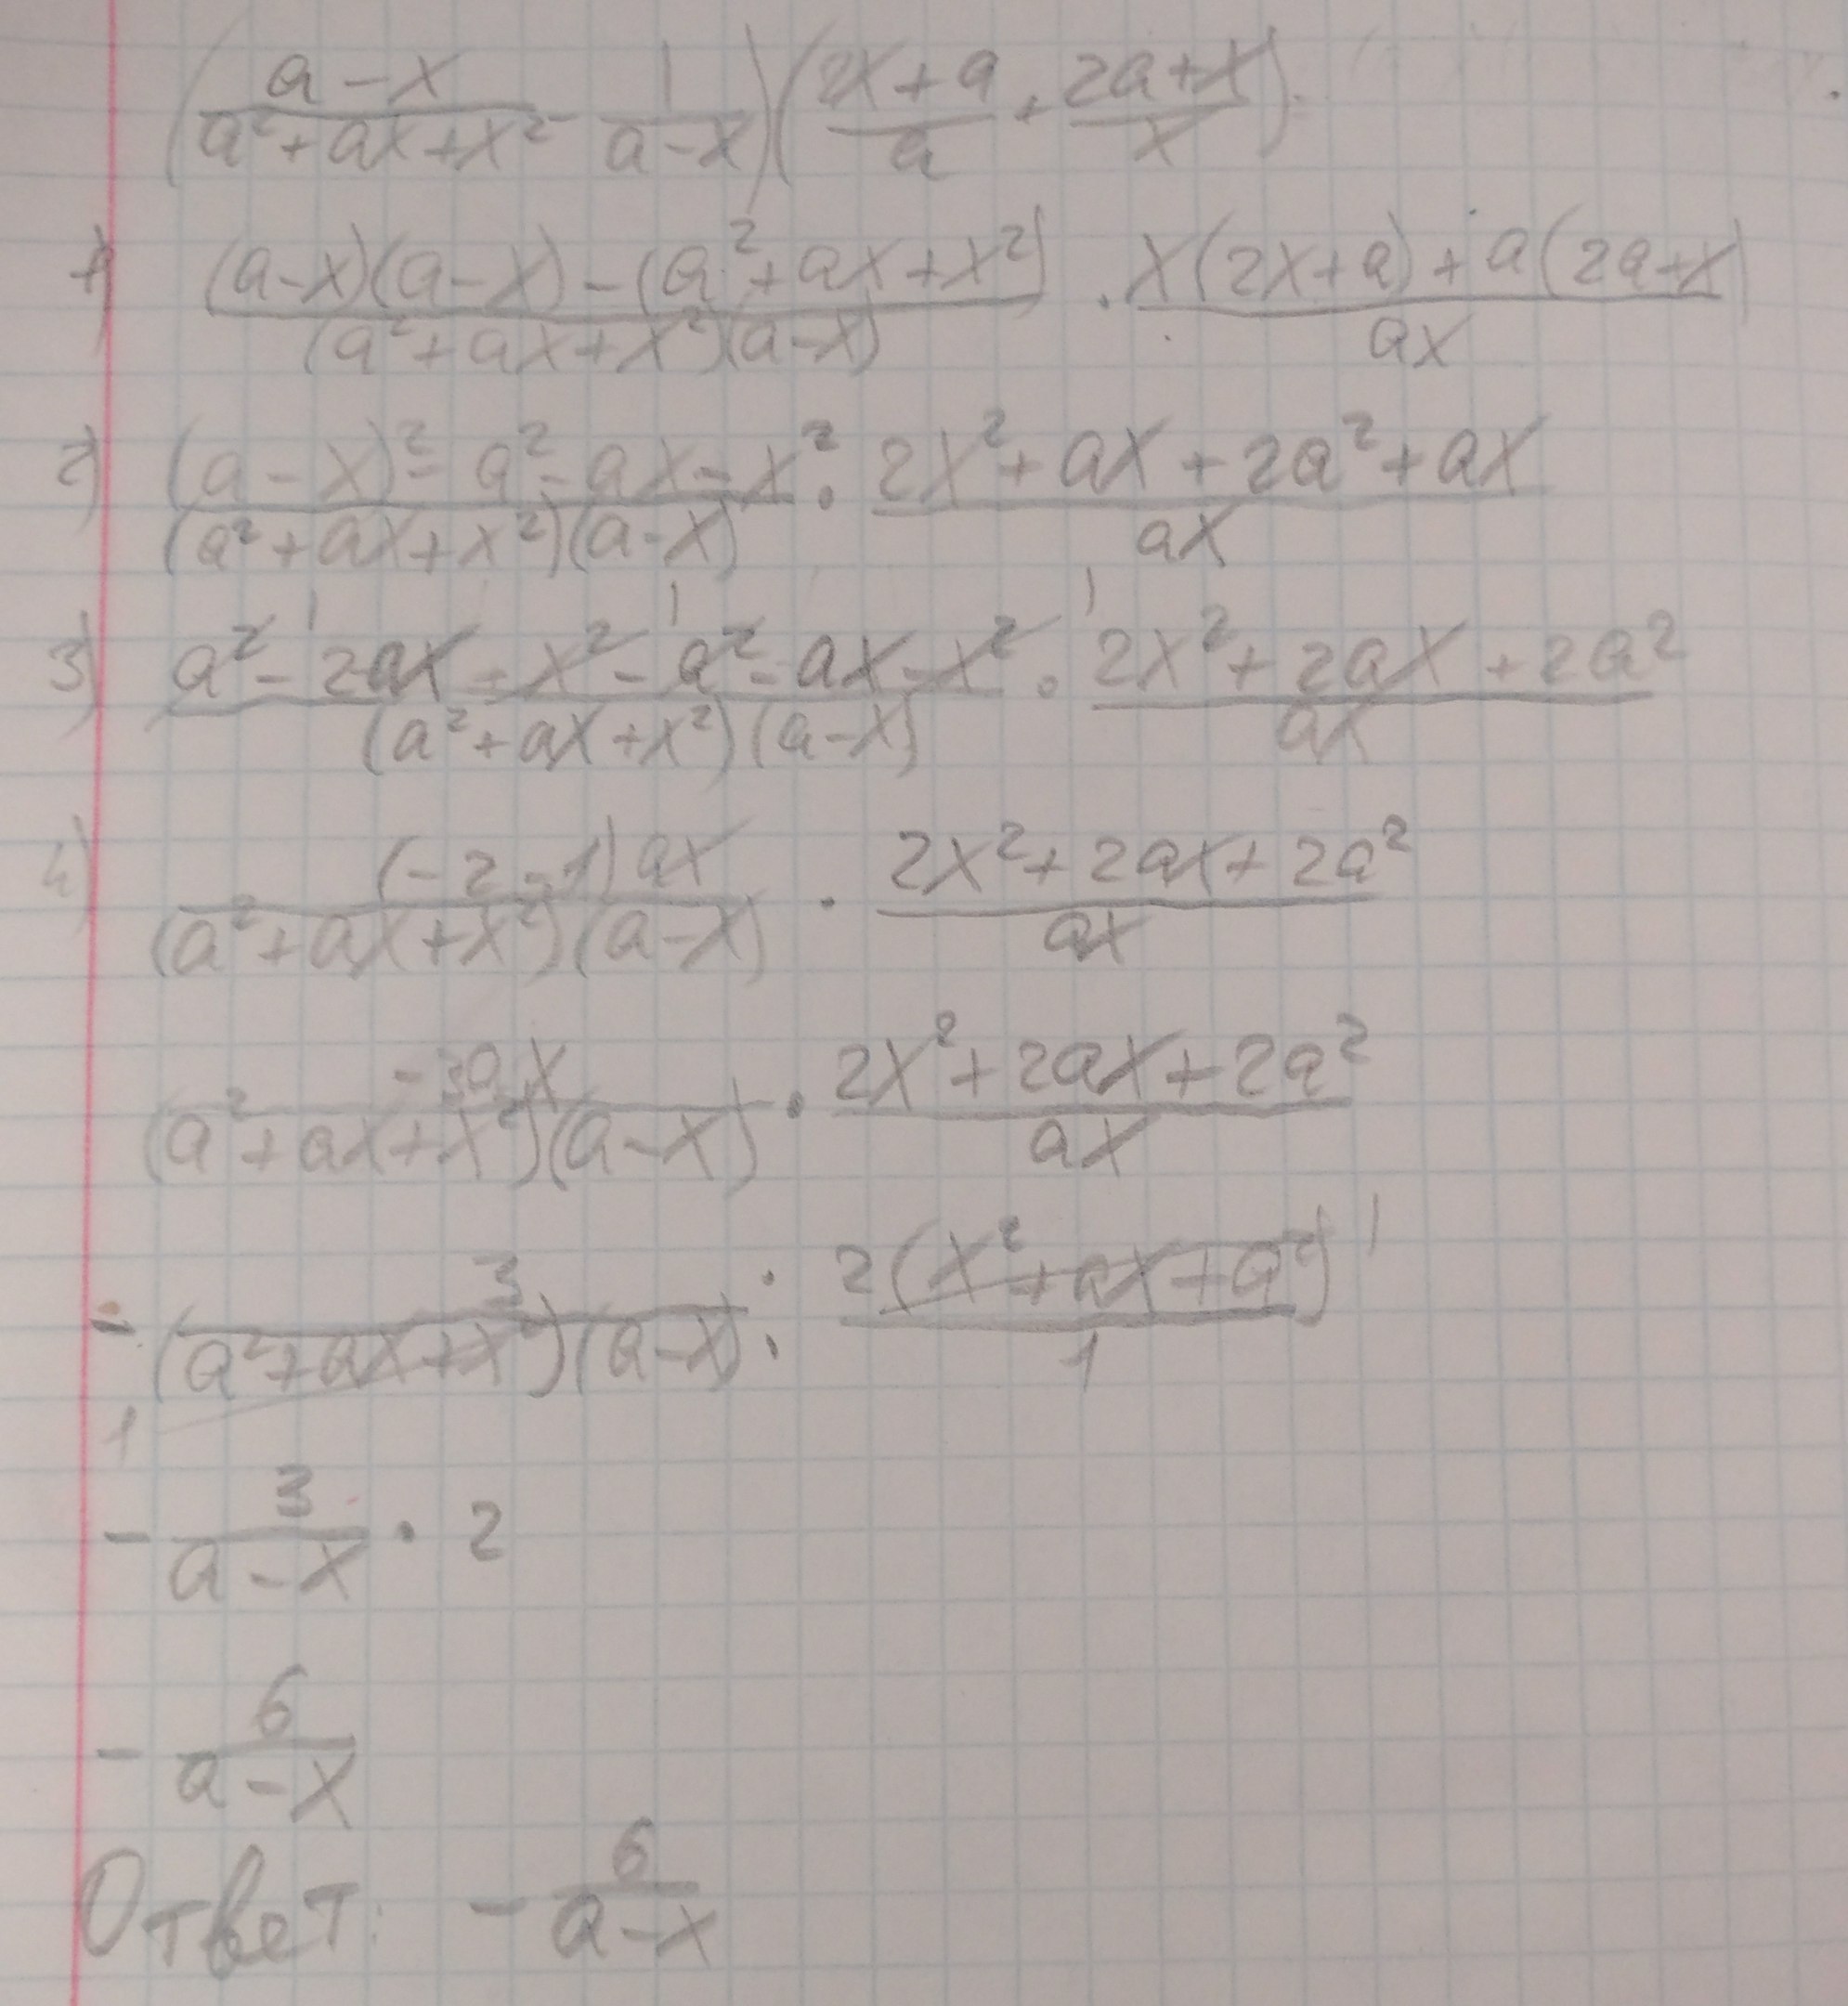 ((a-x)/(a²+ax+x²) - 1/(a-x))((2x+a)/a + (2a+x)/x)
1) ((a-x)(a-x)-(a²+ax+x²))/((a²+ax+x²)(a-x)) · (x(2x+a)+a(2a+x))/(ax)
2) ((a-x)²-a²-ax-x²)/((a²+ax+x²)(a-x)) · (2x²+ax+2a²+ax)/(ax)
3) (a²-2ax+x²-a²-ax-x²)/((a²+ax+x²)(a-x)) · (2x²+2ax+2a²)/(ax)
4) ((-2-1)ax)/((a²+ax+x²)(a-x)) · (2x²+2ax+2a²)/(ax)
(-3ax)/((a²+ax+x²)(a-x)) · (2x²+2ax+2a²)/(ax)
- 3/((a²+ax+x²)(a-x)) : 2(x²+ax+a²)/1
- 3/(a-x) · 2
- 6/(a-x)
Ответ: - 6/(a-x)